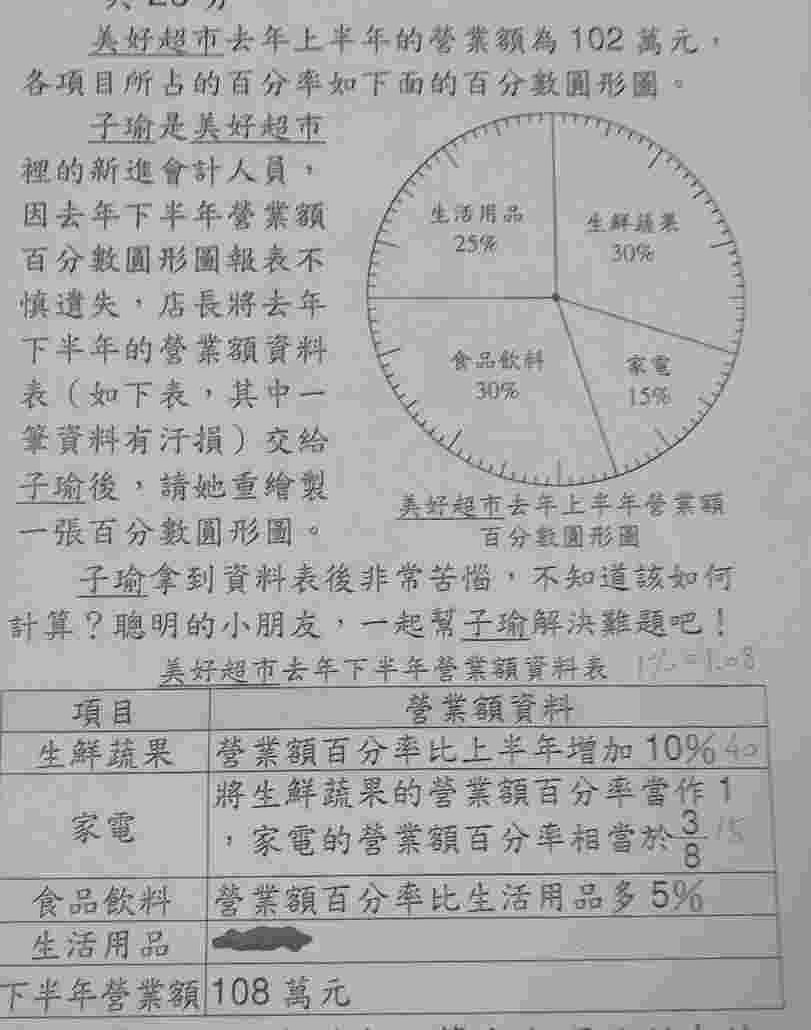 美好超市去年上半年的營業額為 102 萬元，
各項目所占的百分率如下面的百分數圓形圖。
子瑜是美好超市
裡的新進會計人員，
因去年下半年營業額
百分數圓形圖報表不
慎遺失，店長將去年
下半年的營業額資料
表（如下表，其中一
筆資料有汙損）交給
子瑜後，請她重繪製
一張百分數圓形圖。
生活用品
25%
生鮮蔬果
30%
食品飲料
30%
家電
15%
美好超市去年上半年營業額
百分數圓形圖
子瑜拿到資料表後非常苦惱，不知道該如何
計算？聰明的小朋友，一起幫子瑜解決難題吧！
美好超市去年下半年營業額資料表 1%=1.08
項目 營業額資料
生鮮蔬果 營業額百分率比上半年增加 10% 40
家電 將生鮮蔬果的營業額百分率當作 1
，家電的營業額百分率相當於 3/8 15
食品飲料 營業額百分率比生活用品多 5%
生活用品
下半年營業額 108 萬元